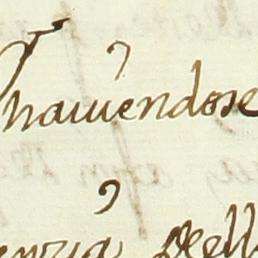 hauuendose
enzia dell